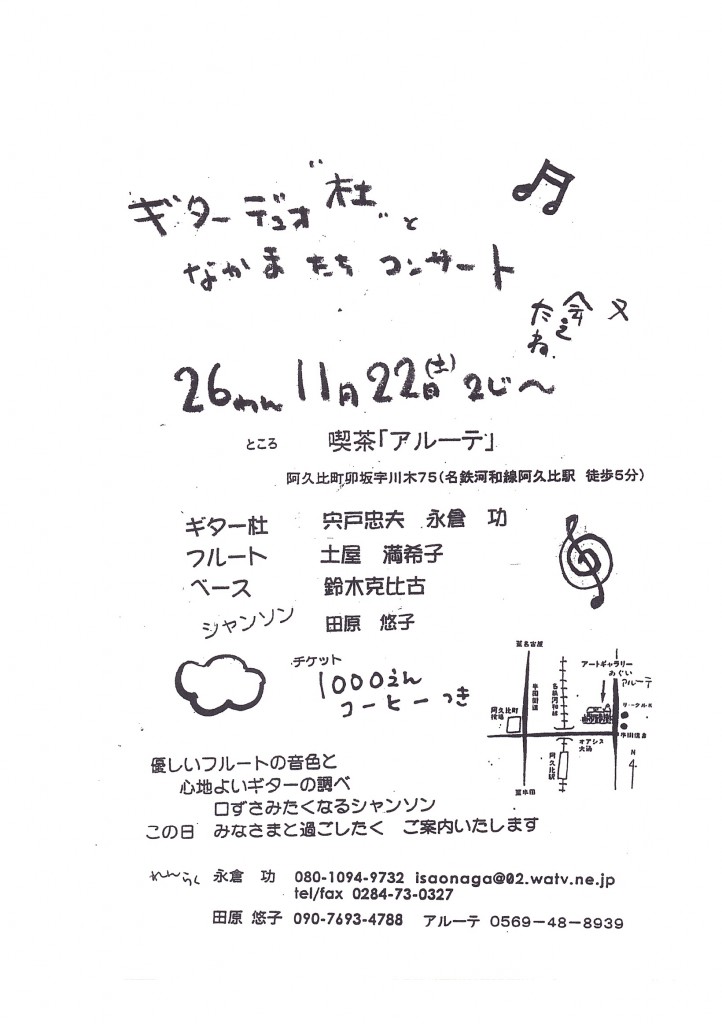 ギターデュオ"杜"と
なかまたち コンサート
又
会えたね
26ねん 11月22日(土) 2じ〜
ところ 喫茶「アルーテ」
阿久比町卯坂字川木75(名鉄河和線阿久比駅 徒歩5分)
ギター杜 宍戸忠夫 永倉 功
フルート 土屋 満希子
ベース 鈴木克比古
シャンソン 田原 悠子
チケット
1000えん
コーヒーつき
至名古屋
アートギャラリー
あぐい
アルーテ
半田街道
名鉄河和線
サークルK
阿久比町
役場
オアシス
大通
半田信金
阿久比駅
N
至半田
優しいフルートの音色と
心地よいギターの調べ
口ずさみたくなるシャンソン
この日 みなさまと過ごしたく ご案内いたします
れんらく 永倉 功 080-1094-9732 isaonaga@02.watv.ne.jp
tel/fax 0284-73-0327
田原 悠子 090-7693-4788 アルーテ 0569-48-8939